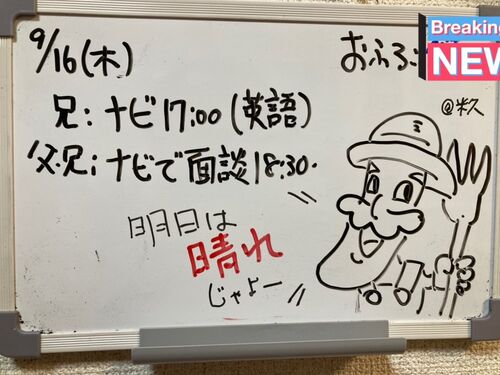 9/16(木)
おふろ:
Breaking
NEW
兄:ナビ17:00(英語)
@米久
父・兄:ナビで面談18:30.
明日は
晴れ
じゃよー